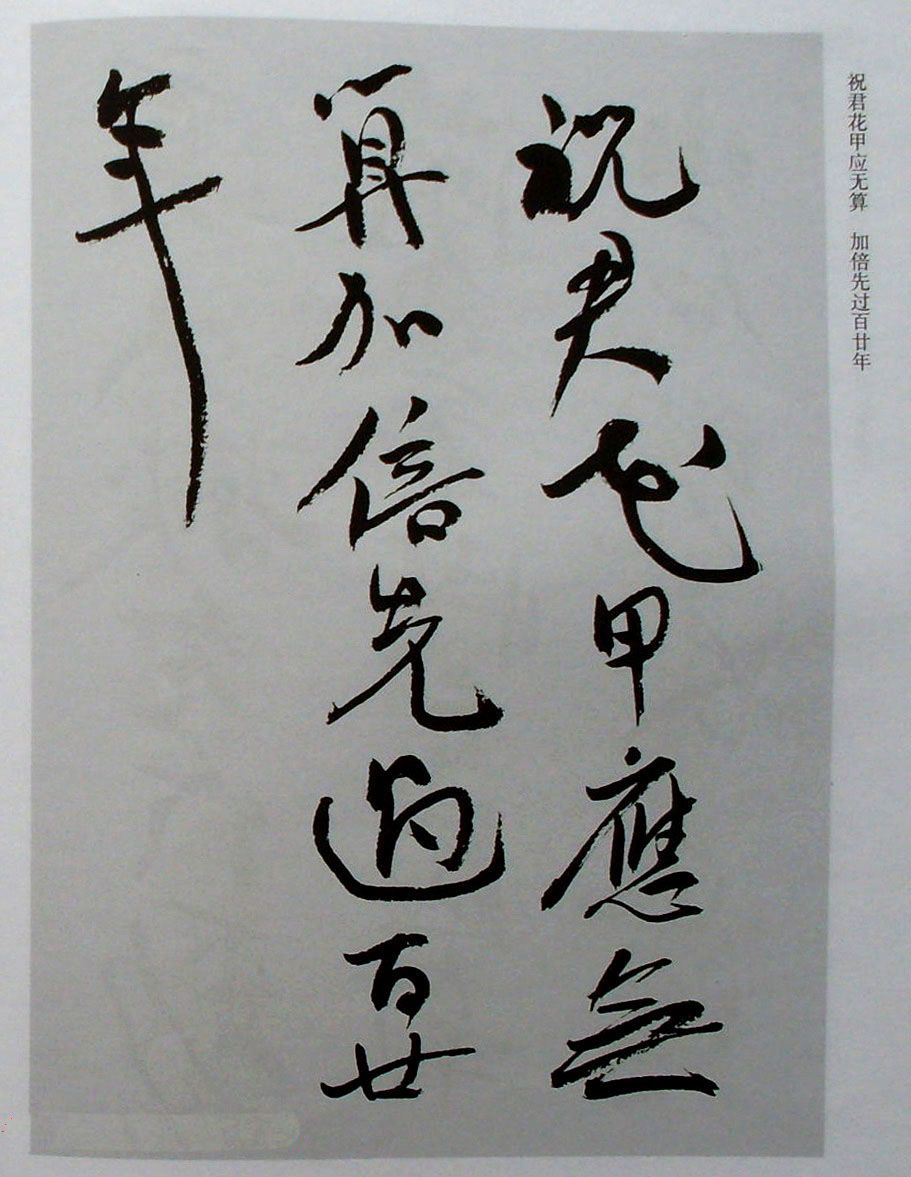 祝君花甲应无算　加倍先过百廿年
祝君花甲應無
算加倍先過百廿
年